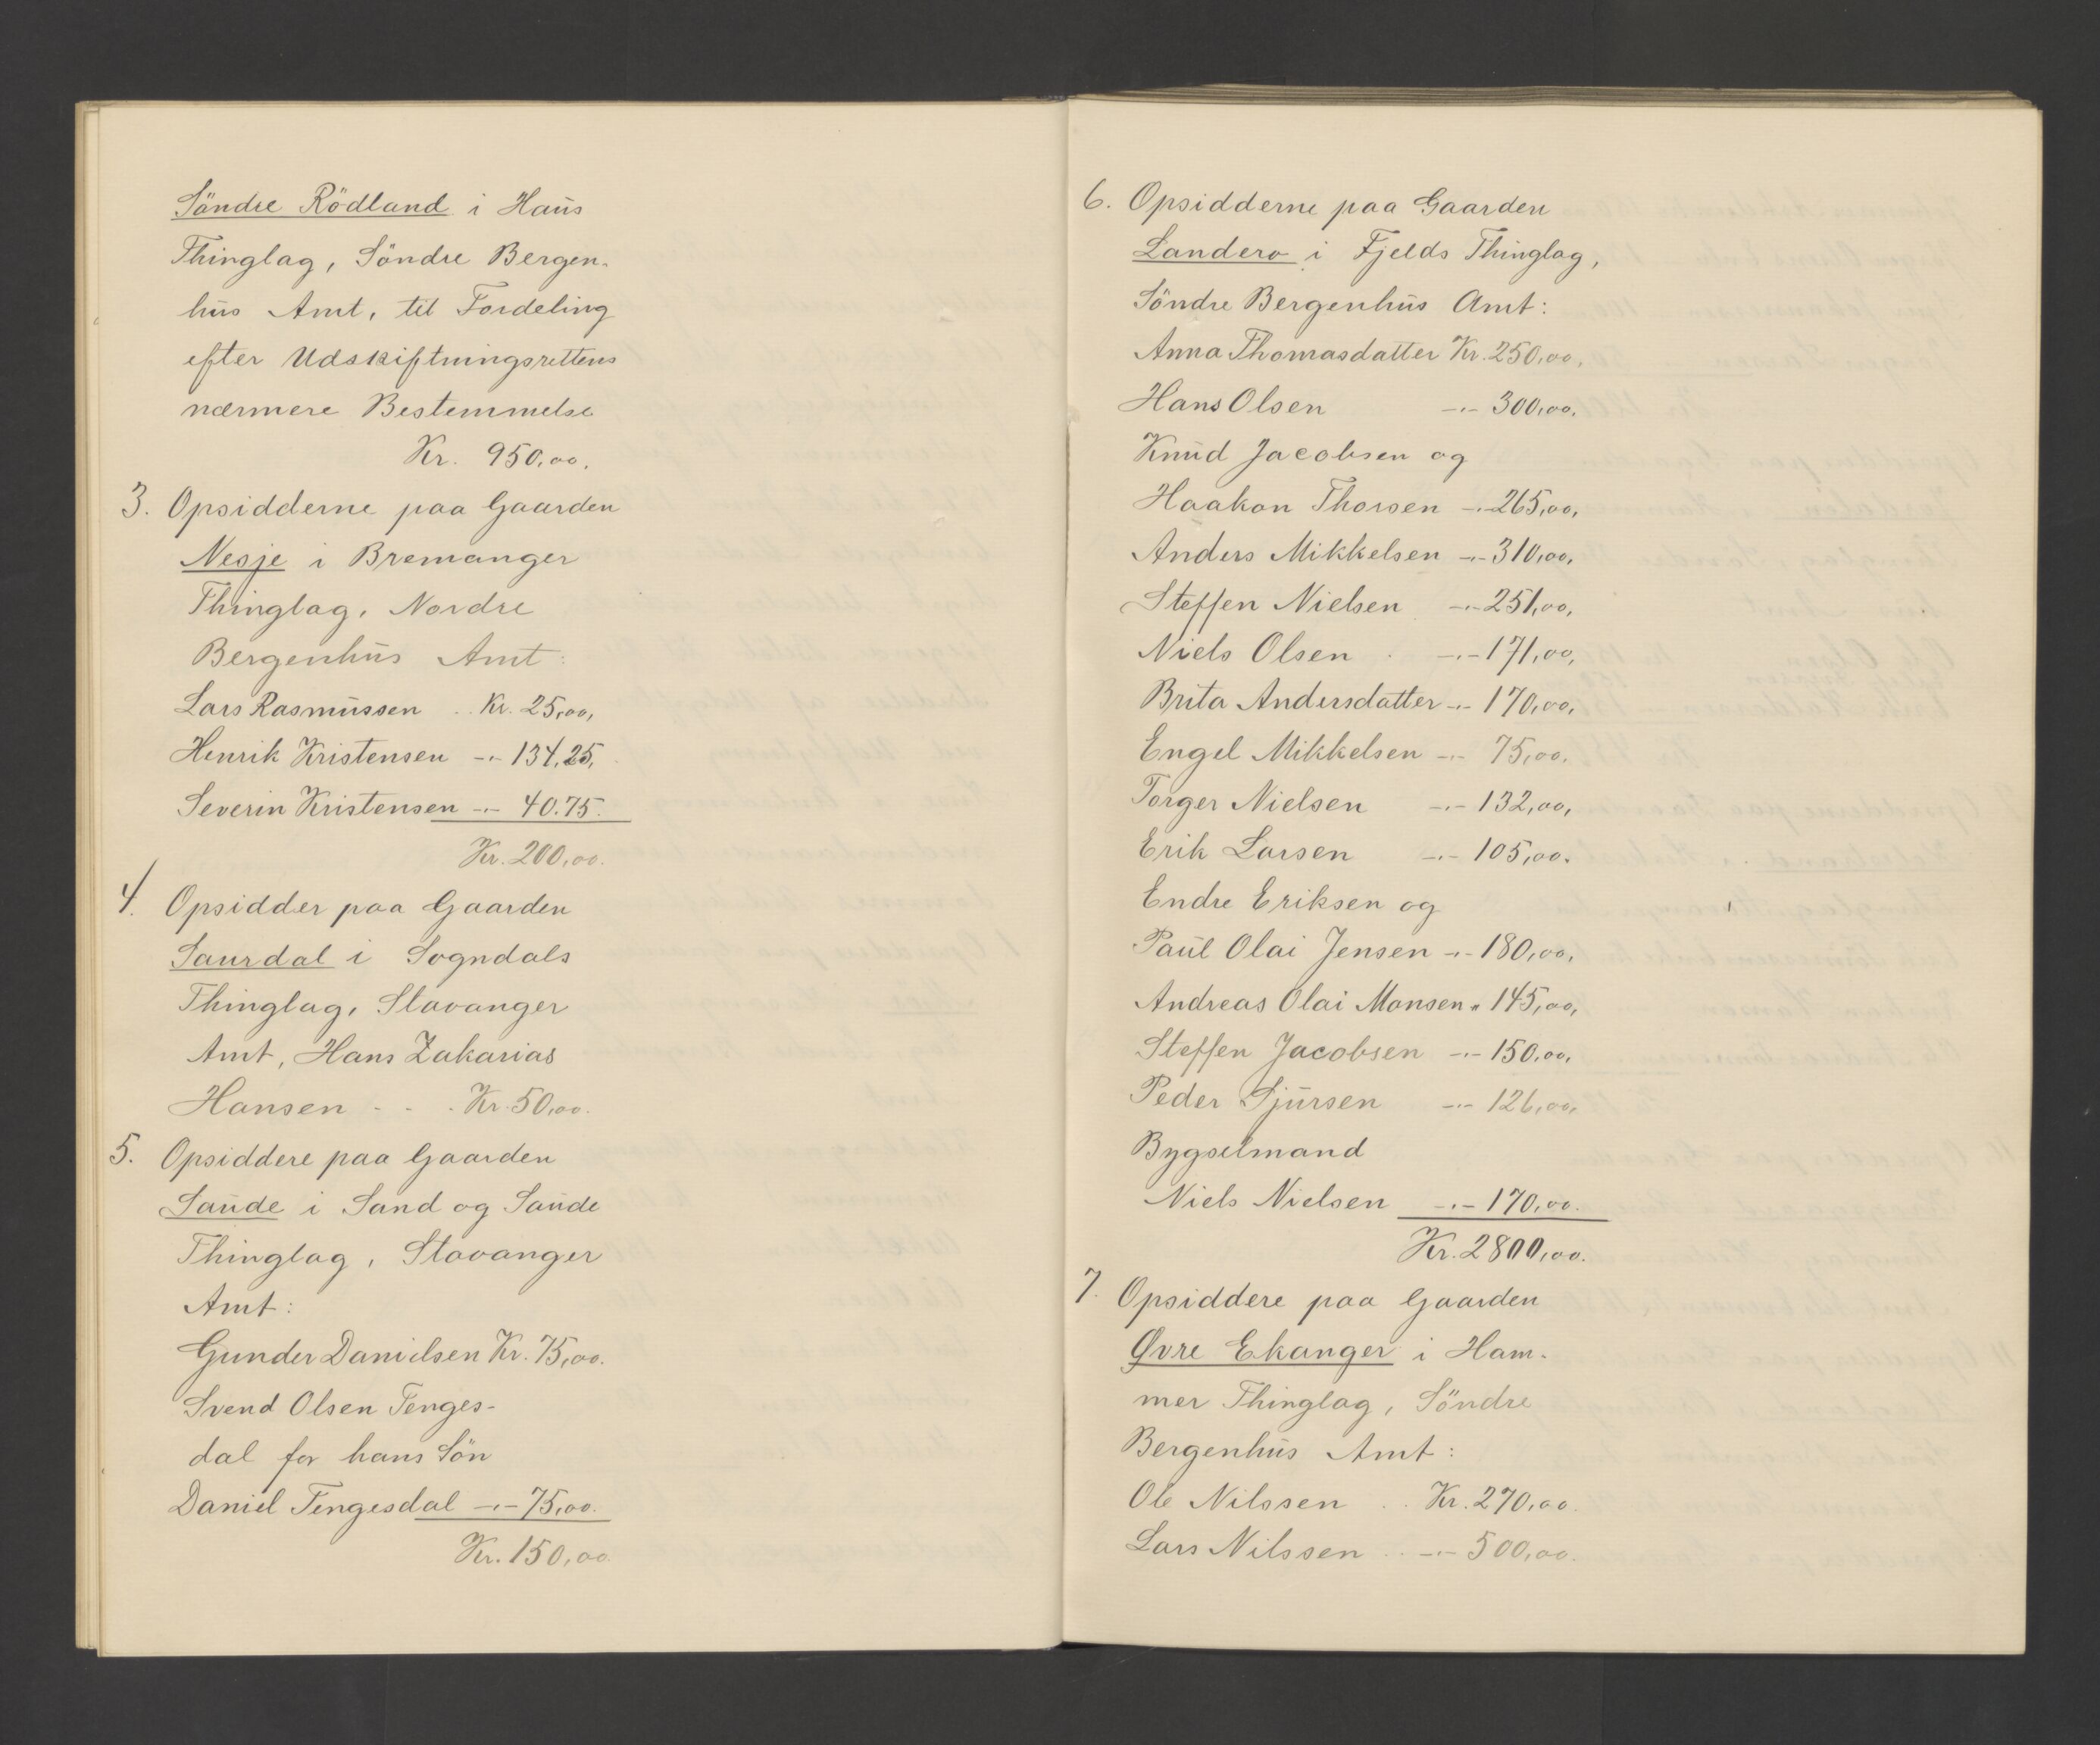 Söndre Rödland i Haus
Thinglag, Söndre Bergen-
hus Amt, til Fordeling
efter Udskiftningsrettens
nærmere Bestemmelse
Kr. 950,00.
3. Opsidderne paa Gaarden
Nesje i Bremanger
Thinglag, Nordre
Bergenhus Amt:
Lars Rasmussen .. Kr. 25,00,
Henrik Kristensen -"- 134,25,
Severin Kristensen -"- 40.75.
Kr. 200,00.
4. Opsidder paa Gaarden
Saurdal i Sogndals
Thinglag, Stavanger
Amt, Hans Zakarias
Hansen - - . Kr. 50,00.
5. Opsiddere paa Gaarden
Saude i Sand og Saude
Thinglag, Stavanger
Amt:
Gunder Danielsen Kr. 75,00.
Svend Olsen Tenges-
dal for hans Sön
Daniel Tengesdal -"- 75,00.
Kr. 150,00.
6. Opsidderne paa Gaarden
Landero i Fjelds Thinglag,
Söndre Bergenhus Amt:
Anna Thomasdatter Kr. 250,00,
Hans Olsen -"- 300,00.
Knud Jacobsen og
Haakon Thorsen -"- 265,00,
Anders Mikkelsen -"- 310,00,
Steffen Nielsen -"- 251,00,
Niels Olsen . -"- 171,00,
Brita Andersdatter -"- 170,00,
Engel Mikkelsen -"- 75,00.
Torger Nielsen -"- 132,00,
Erik Larsen -"- 105,00.
Endre Eriksen og
Paul Olai Jensen -"- 180,00,
Andreas Olai Monsen " 145,00,
Steffen Jacobsen -"- 150,00,
Peder Sjursen -"- 126,00,
Bygselmand
Niels Nielsen -"- 170,00.
Kr. 2800,00.
7. Opsiddere paa Gaarden
Øvre Ekanger i Ham-
mer Thinglag, Söndre
Bergenhus Amt:
Ole Nilssen .. Kr. 270,00.
Lars Nilssen .. -"- 500,00.